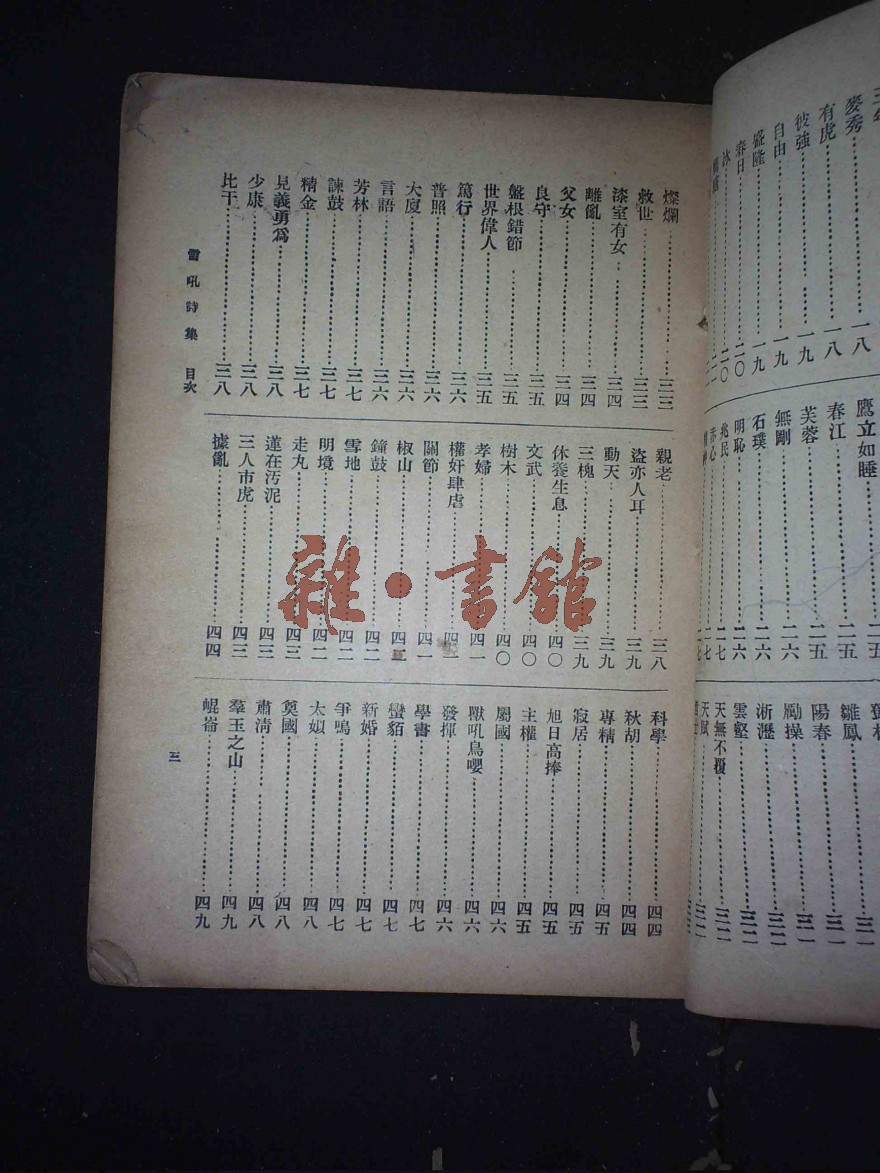 麥秀………一八
有虎………一八
彼強………一九
自由………一九
盛隆………一九
春日………二〇
鷹立如睡………二五
春江………二五
芙蓉………二五
無剛………二六
石璞………二六
明恥………二六
兆民………二七
赤心………二七
雛鳳………三一
陽春………三一
勵操………三一
淅瀝………三一
雲壑………三二
天無不覆………三二
天賦………三二
燦爛………三三
救世………三三
漆室有女………三四
離亂………三四
父女………三四
良守………三五
盤根錯節………三五
世界偉人………三五
篤行………三六
普照………三六
大廈………三六
言語………三六
芳林………三七
諫鼓………三七
精金………三七
見義勇為………三八
少康………三八
比干………三八
親老………三八
盜亦人耳………三九
動天………三九
三槐………三九
休養生息………四〇
文武………四〇
樹木………四〇
孝婦………四一
權奸肆虐………四一
關節………四一
椒山………四二
鐘鼓………四二
雪地………四二
明境………四二
走丸………四三
蓮在汚泥………四三
三人市虎………四三
據亂………四四
科學………四四
秋胡………四四
專精………四五
寂居………四五
旭日高捧………四五
主權………四五
屬國………四六
獸吼鳥嚶………四六
發揮………四六
學書………四七
蠻貊………四七
新婚………四七
爭鳴………四七
太姒………四八
莫國………四八
肅清………四八
羣玉之山………四九
崐崙………四九
雷吼詩集 目次
三
雜·書館